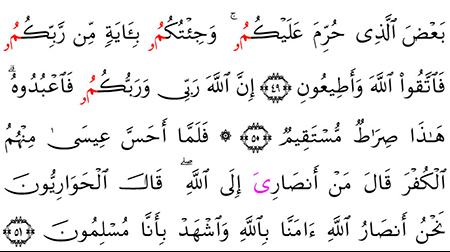 بَعۡضَ ٱلَّذِي حُرِّمَ عَلَيۡكُمُۥۚ وَجِئۡتُكُمُۥ بِـَٔايَةٖ مِّن رَّبِّكُمُۥ
فَٱتَّقُواْ ٱللَّهَ وَأَطِيعُونِ ٤٩ إِنَّ ٱللَّهَ رَبِّي وَرَبُّكُمُۥ فَٱعۡبُدُوهُۚ
هَٰذَا صِرَٰطٞ مُّسۡتَقِيمٞ ٥٠ ۞ فَلَمَّآ أَحَسَّ عِيسَىٰ مِنۡهُمُ
ٱلۡكُفۡرَ قَالَ مَنۡ أَنصَارِيَ إِلَى ٱللَّهِۖ قَالَ ٱلۡحَوَارِيُّونَ
نَحۡنُ أَنصَارُ ٱللَّهِ ءَامَنَّا بِٱللَّهِ وَٱشۡهَدۡ بِأَنَّا مُسۡلِمُونَ ٥١